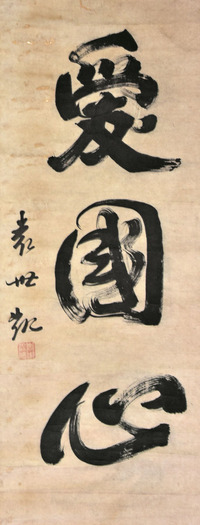 愛國心
袁世凱